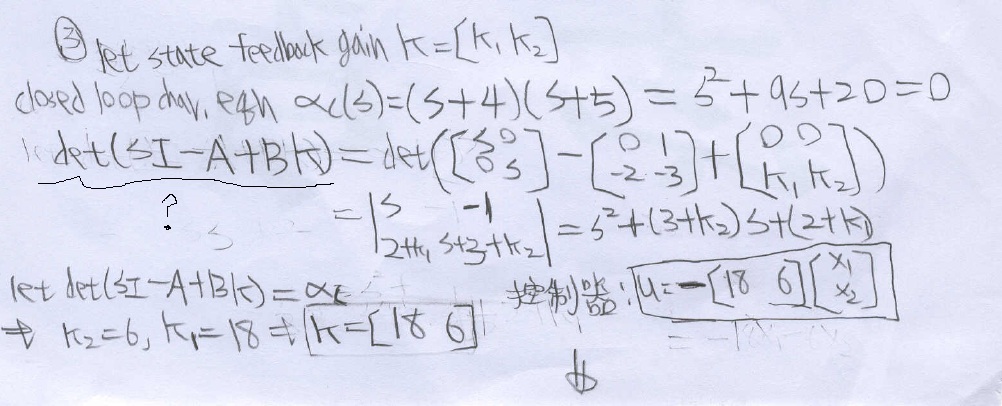 ③ let state feedback gain K=[K₁ K₂]
closed loop char. eqn αc(s)=(s+4)(s+5)=s²+9s+20=0
det(sI-A+BK)=det([s 0; 0 s]-[0 1; -2 -3]+[0 0; K₁ K₂])
?
=|s -1; 2+K₁ s+3+K₂|=s²+(3+K₂)s+(2+K₁)
let det(sI-A+BK)=αc
控制器: u=-[18 6][x₁; x₂]
⇒ K₂=6, K₁=18 ⇒ K=[18 6]